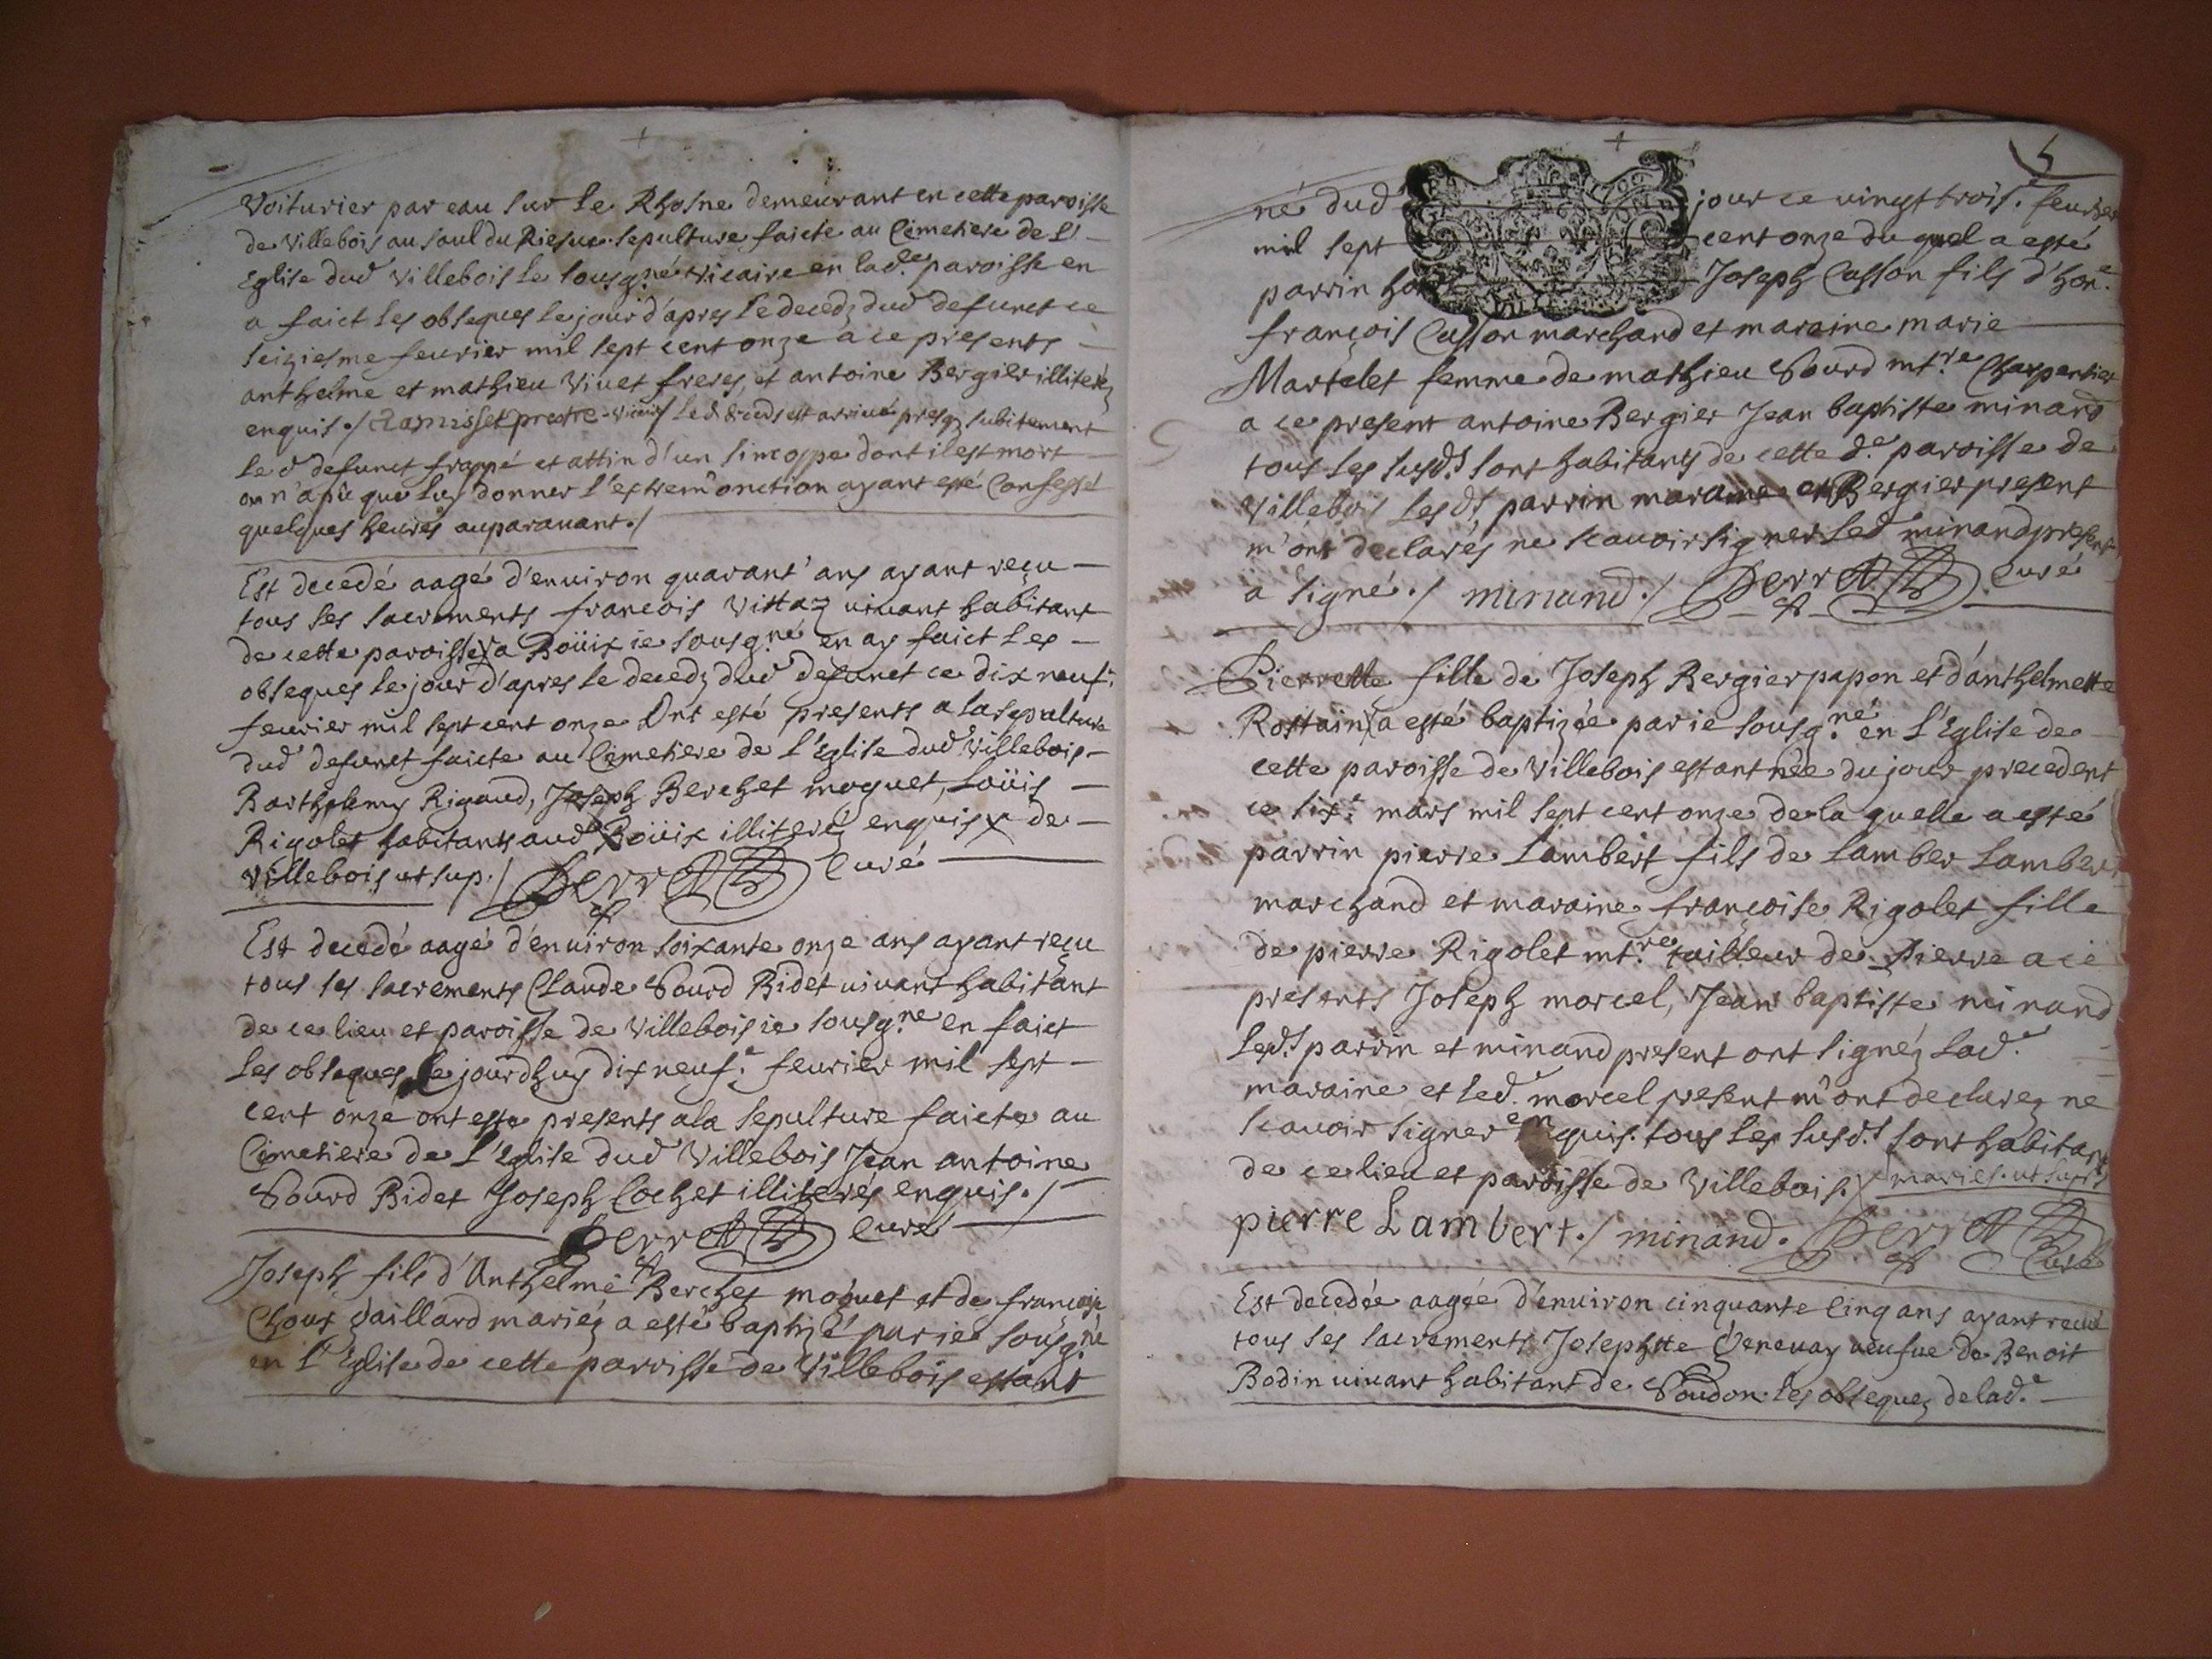 Voiturier par eau sur le Rhosne demeurant en cette paroisse
de Villebois au saul du Riesue sepulture faicte au Cimetiere de l'
Eglise dud Villebois le sousg.né vicaire en lad.e paroisse en
a faict les obseques le jour d'apres le decedz dud defunct ce
seiziesme feurier mil sept cent onze a ce presents
anthelme et mathieu Viuet freres, et antoine Bergier illiteréz
enquis ./ Ramisset prestre vicaire led deceds est arriué presq subitement
led defunct frappé et attin d'un sincospe dont il est mort
on n'a pû que luy donner l'extrem'onction ayant esté Confessé
quelques heures auparauant ./
Est decedé aagé d'enuiron quarant' ans ayant reçu
tous ses sacrements francois Vittaz uiuant habitant
de cette paroisse a Boüix ie sousg.né en ay faict les
obseques le jour d'apres le decedz dud defunct ce dix neuf.e
feurier mil sept cent onze Ont esté presents a la sepulture
dud defunct faicte au Cimetiere de l'Eglise dud Villebois
Barthelemy Rigaud, Joseph Berchet moquet, Loüis
Rigolet habitants aud Boüix illiteréz enquis x de
Villebois ut sup. / Perret Curé
Est decedé aagé d'enuiron soixante onze ans ayant reçu
tous ses sacrements Claude Sourd Bidet uiuant habitant
de ce lieu et paroisse de Villebois ie sousg.né en faict
les obseques le jourdhuy dix neuf.e feurier mil sept
cent onze ont esté presents a la sepulture faicte au
Cimetiere de l'Eglise dud Villebois Jean antoine
Sourd Bidet Joseph Cochet illiterés enquis ./
Perret Curé
Joseph fils d'Anthelme Berchet moquet et de françoise
Chour gaillard mariéz a esté baptizé par ie sousg.né
en l'Eglise de cette paroisse de Villebois estant
5
né dud jour ce uingt trois.e feurier
mil sept cent onze du quel a esté
parrin Joseph Casson fils d'hon.e
françois Casson marchand et maraine marie
Martelet femme de mathieu Sourd mt.re Charpentier
a ce present antoine Bergier Jean baptiste minand
tous les susd.s sont habitants de cette d.e paroisse de
Villebois lesd.s parrin maraine et Bergier present
m'ont declarés ne scauoir signer led minand present
a signé ./ minand ./ Perret Curé
Pierrette fille de Joseph Bergier papon et d'anthelmette
Rostain a esté baptizée par ie sousg.né en l'Eglise de
cette paroisse de Villebois estant née du jour precedent
ce six.e mars mil sept cent onze de la quelle a esté
parrin pierre Lambert fils de Lamber Lambert
marchand et maraine françoise Rigolet fille
de pierre Rigolet mt.re tailleur de pierre a ce
presents Joseph morcel, Jean baptiste minand
lesd.s parrin et minand present ont signéz lad.e
maraine et led. morcel present m'ont declarez ne
scauoir signer enquis. tous les susd.s sont habitans
de ce lieu et paroisse de Villebois. / mariés. ut sup.
pierre Lambert ./ minand . Perret Curé
Est decedée aagée d'enuiron cinquante cinq ans ayant reçu
tous ses sacrements Josephtte Veneuay ueufue de Benoit
Bodin uiuant habitant de Soudon. les obseques de lad.e